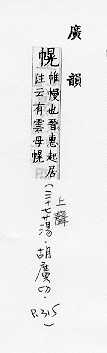 廣韻
幌
帷幔也晉惠起居
注云有雲母幌
上聲
(三十七蕩.胡廣切.
P.315)